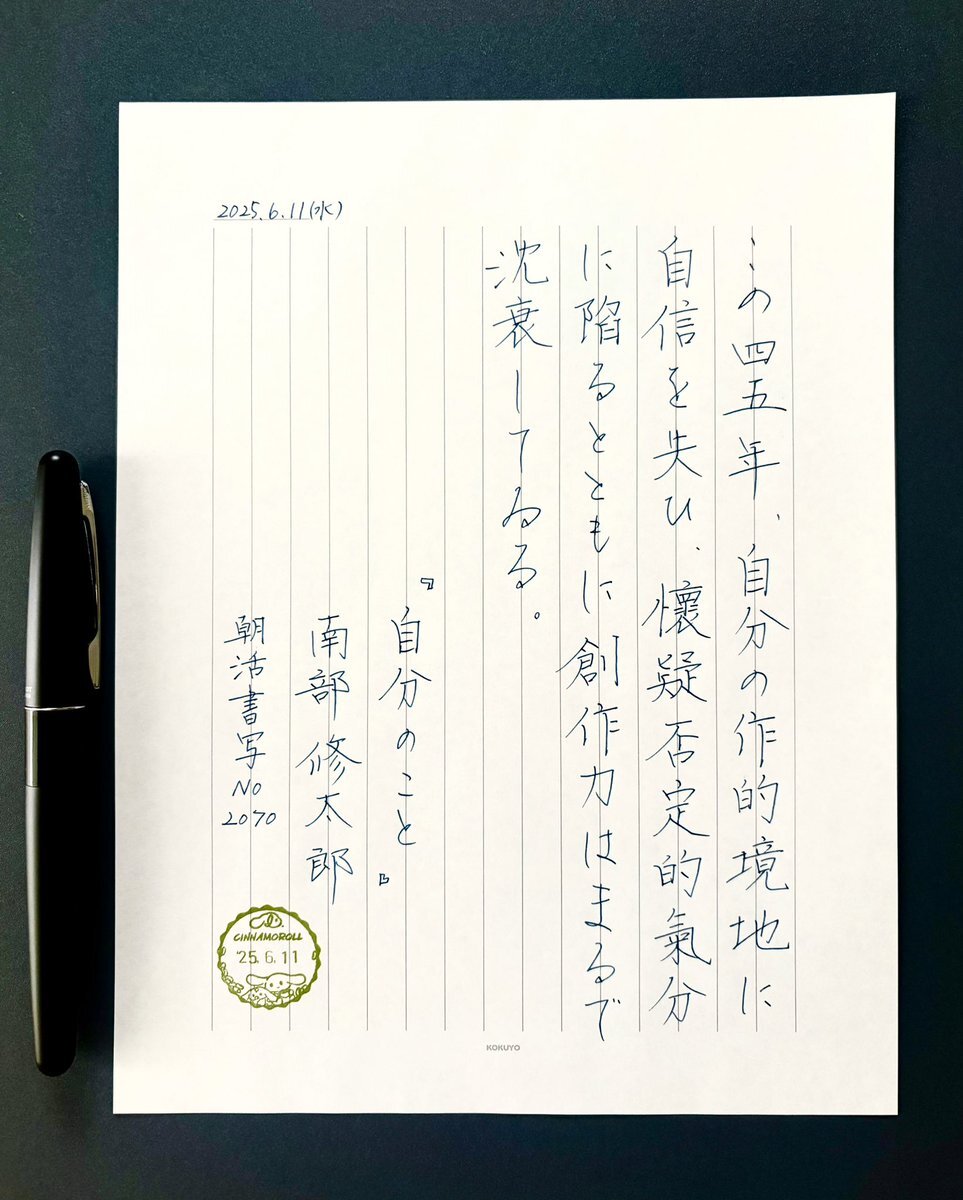 2025.6.11(水)
この四五年、自分の作的境地に
自信を失ひ、懷疑否定的氣分
に陷るとともに創作力はまるで
沈衰してゐる。
『自分のこと』
南部修太郎
朝活書写No
2070
CINNAMOROLL
'25.6.11
KOKUYO